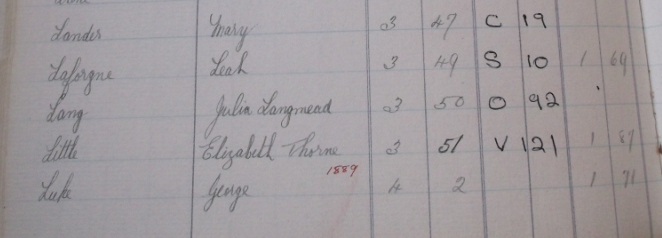 Lander Mary 3 47 C 19
Laforgne Leah 3 49 S 10 1 69
Lang Julia Langmead 3 50 O 92
Little Elizabeth Thorne 3 51 V 121 1 87
1889
Luke George 4 2 1 71